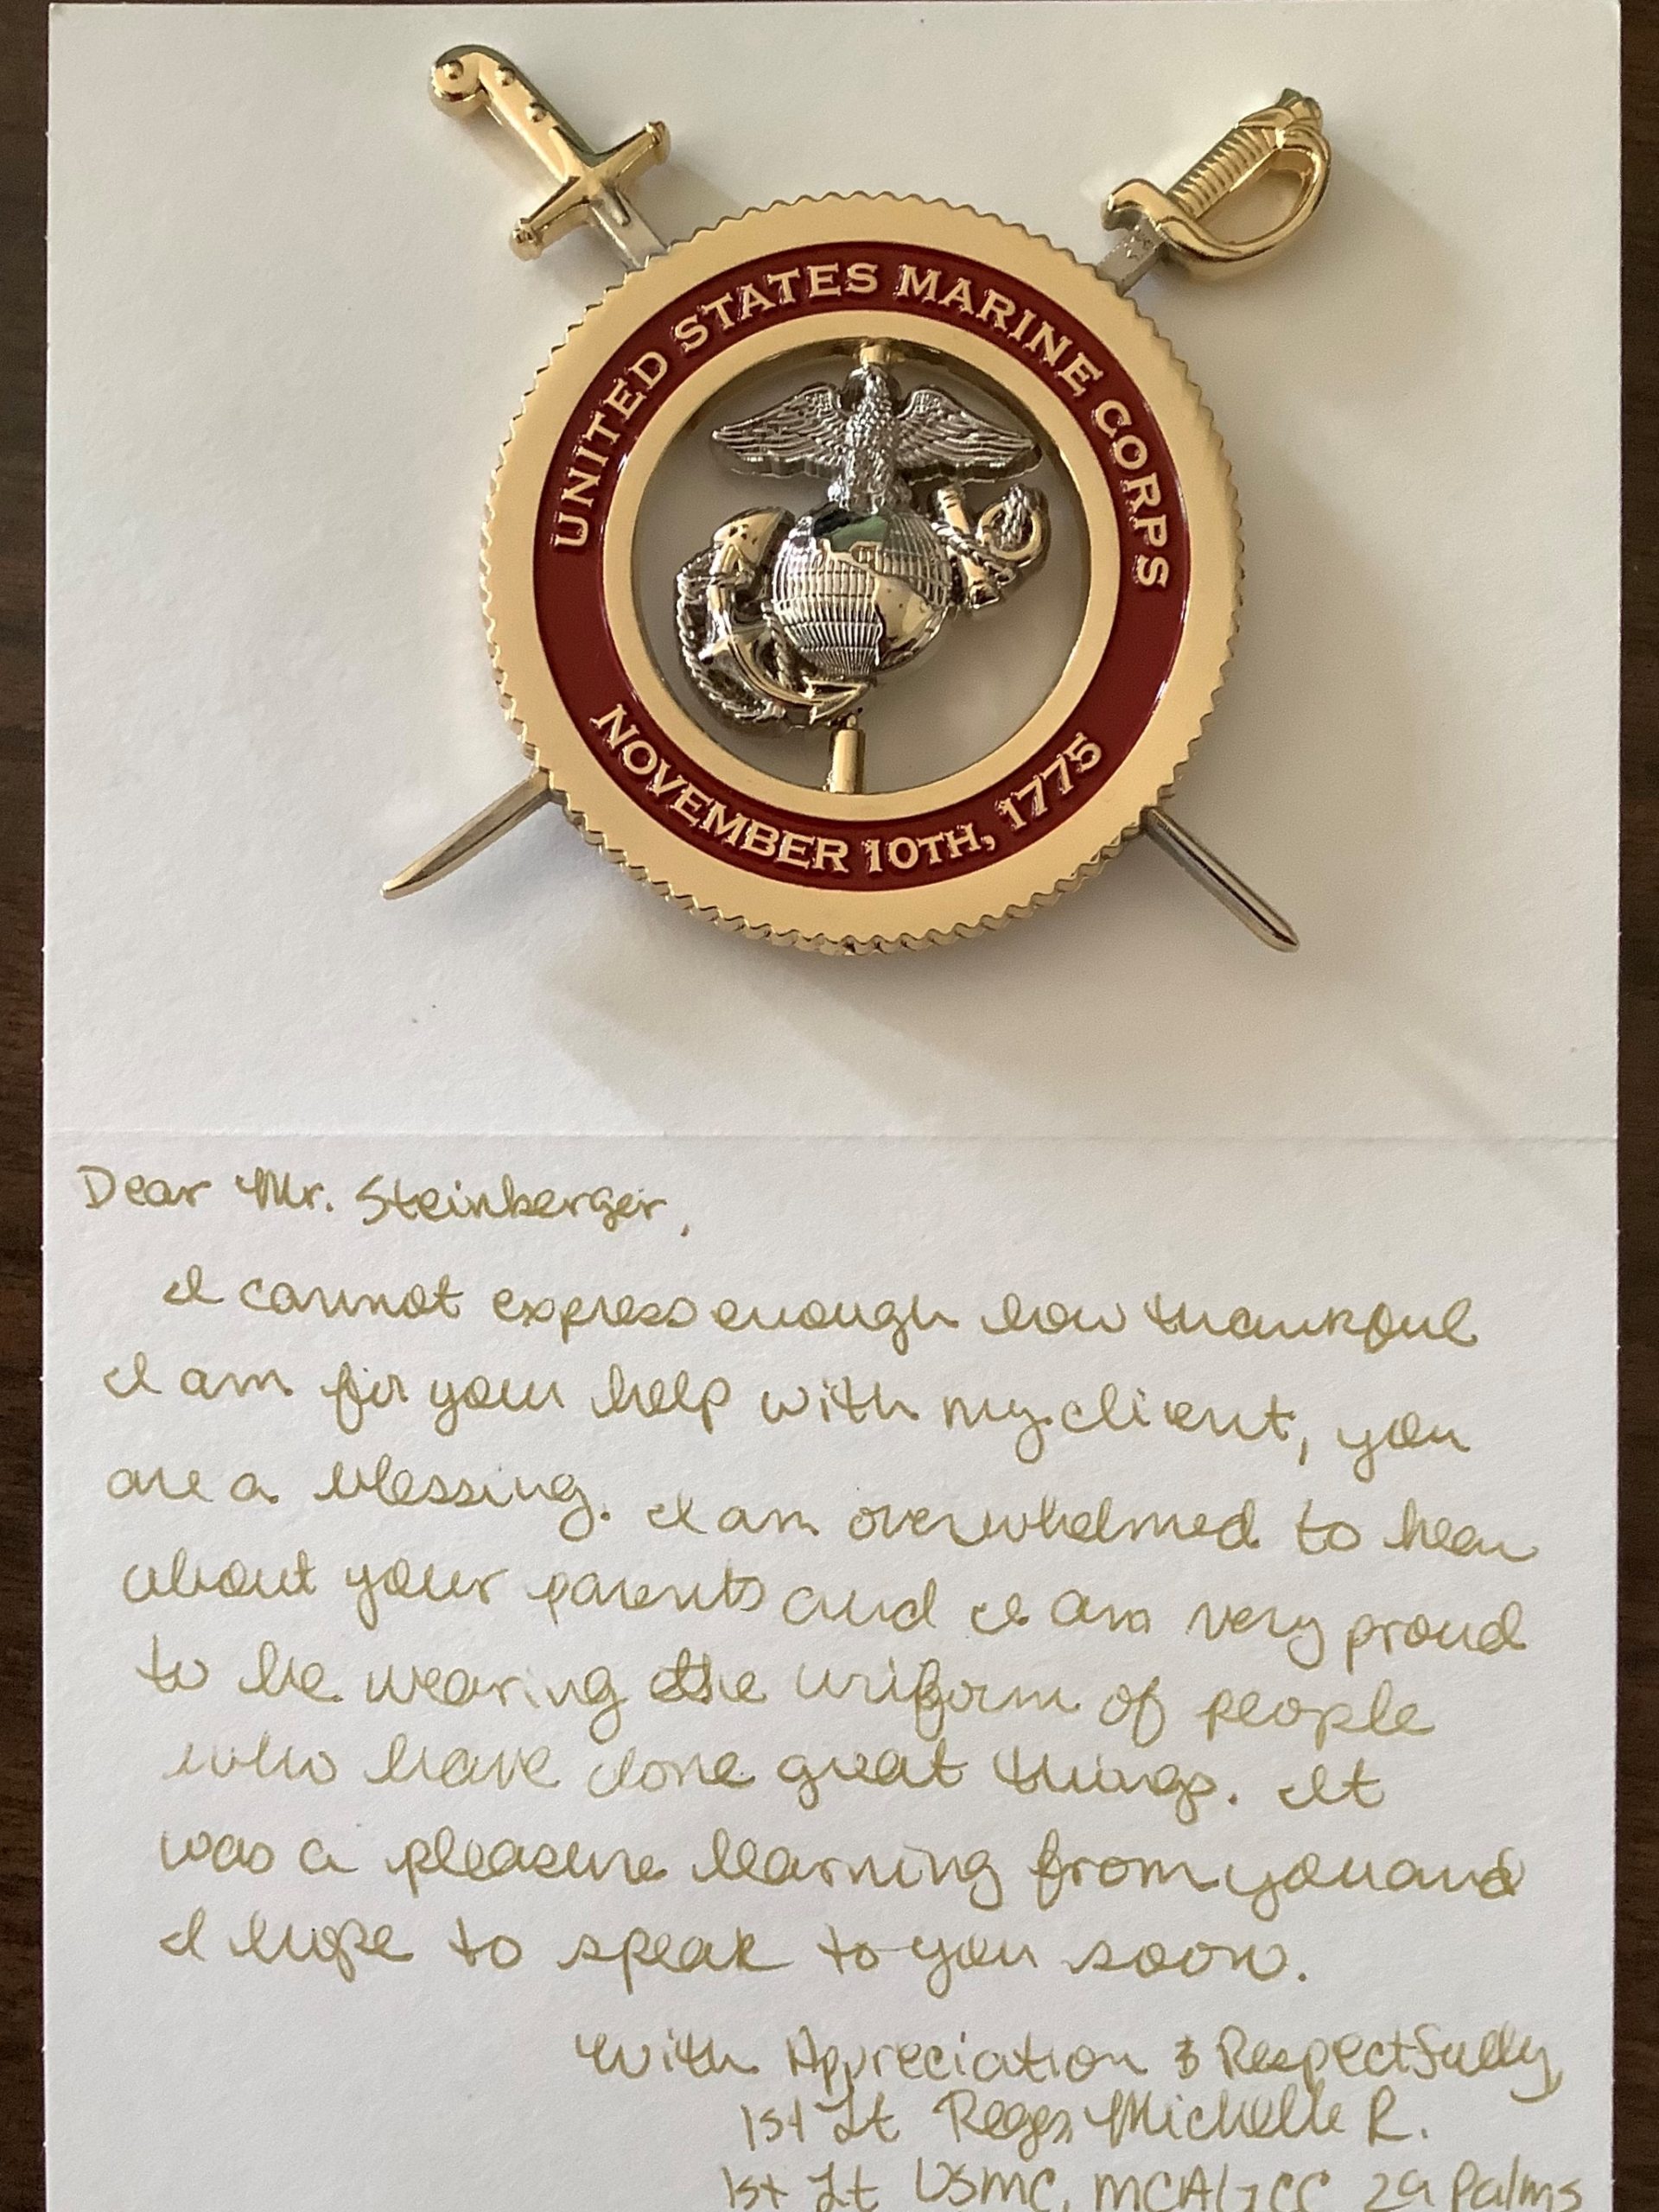 UNITED STATES MARINE CORPS
NOVEMBER 10TH, 1775
Dear Mr. Steinberger,
I cannot express enough how thankful
I am for your help with my client, you
are a blessing. I am overwhelmed to hear
about your parents and I am very proud
to be wearing the uniform of people
who have done great things. It
was a pleasure learning from you and
I hope to speak to you soon.
With Appreciation & Respectfully,
1st Lt Michelle R.
1st Lt USMC, MCAGCC 29 Palms